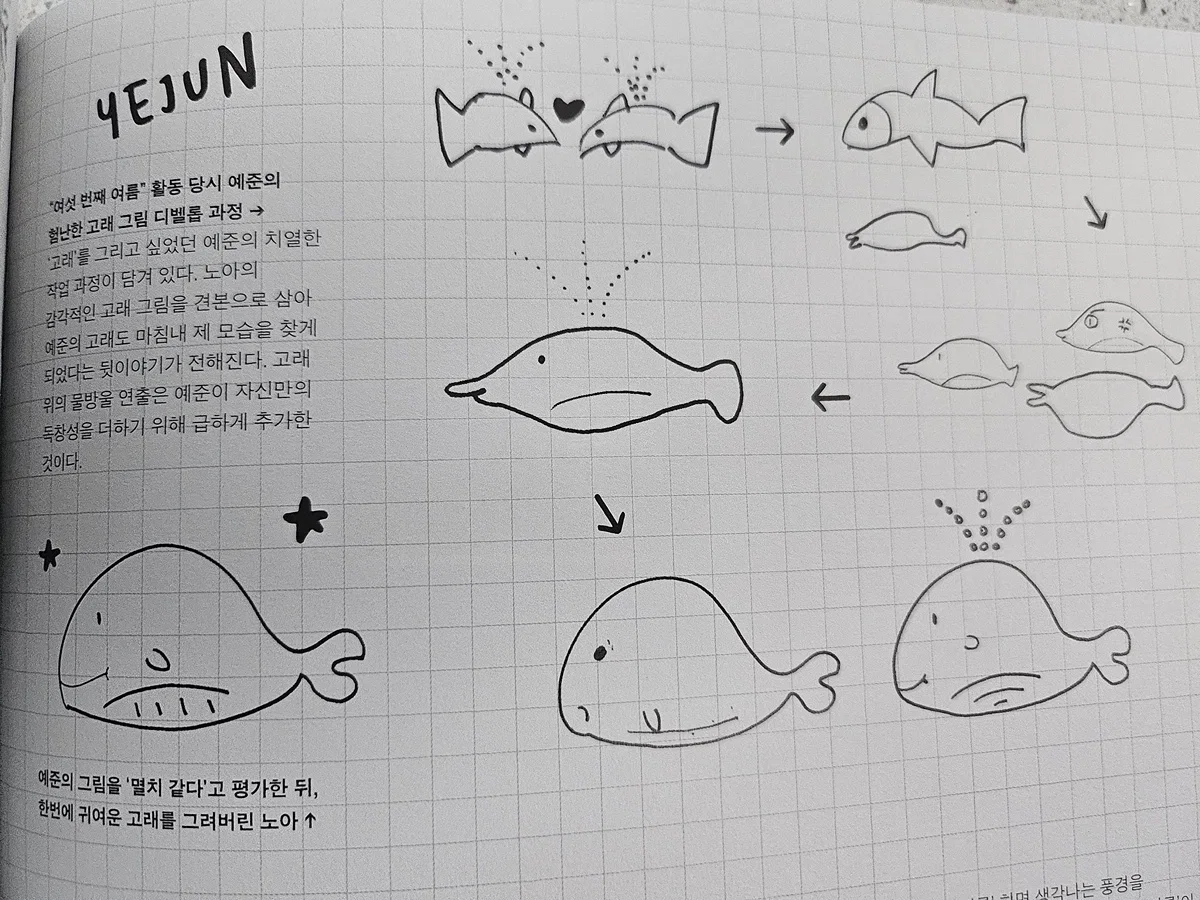 YEJUN
"여섯 번째 여름" 활동 당시 예준의
험난한 고래 그림 디벨롭 과정 →
'고래'를 그리고 싶었던 예준의 치열한
작업 과정이 담겨 있다. 노아의
감각적인 고래 그림을 견본으로 삼아
예준의 고래도 마침내 제 모습을 찾게
되었다는 뒷이야기가 전해진다. 고래
위의 물방울 연출은 예준이 자신만의
독창성을 더하기 위해 급하게 추가한
것이다.
예준의 그림을 '멸치 같다'고 평가한 뒤,
한번에 귀여운 고래를 그려버린 노아 ↑
하면 생각나는 풍경을